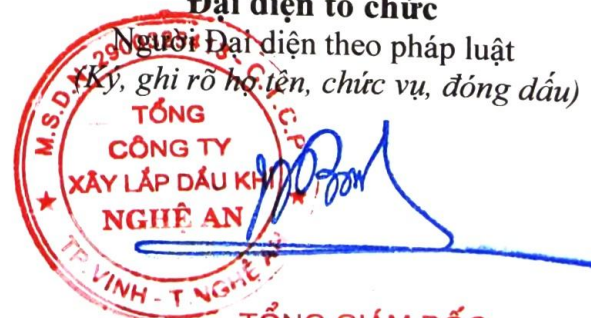 Đại diện tổ chức
Người Đại diện theo pháp luật
(Ký, ghi rõ họ tên, chức vụ, đóng dấu)
TỔNG
CÔNG TY
XÂY LẮP DẦU KHÍ
NGHỆ AN
TP. VINH - T. NGHỆ AN
TỔNG GIÁM ĐỐC